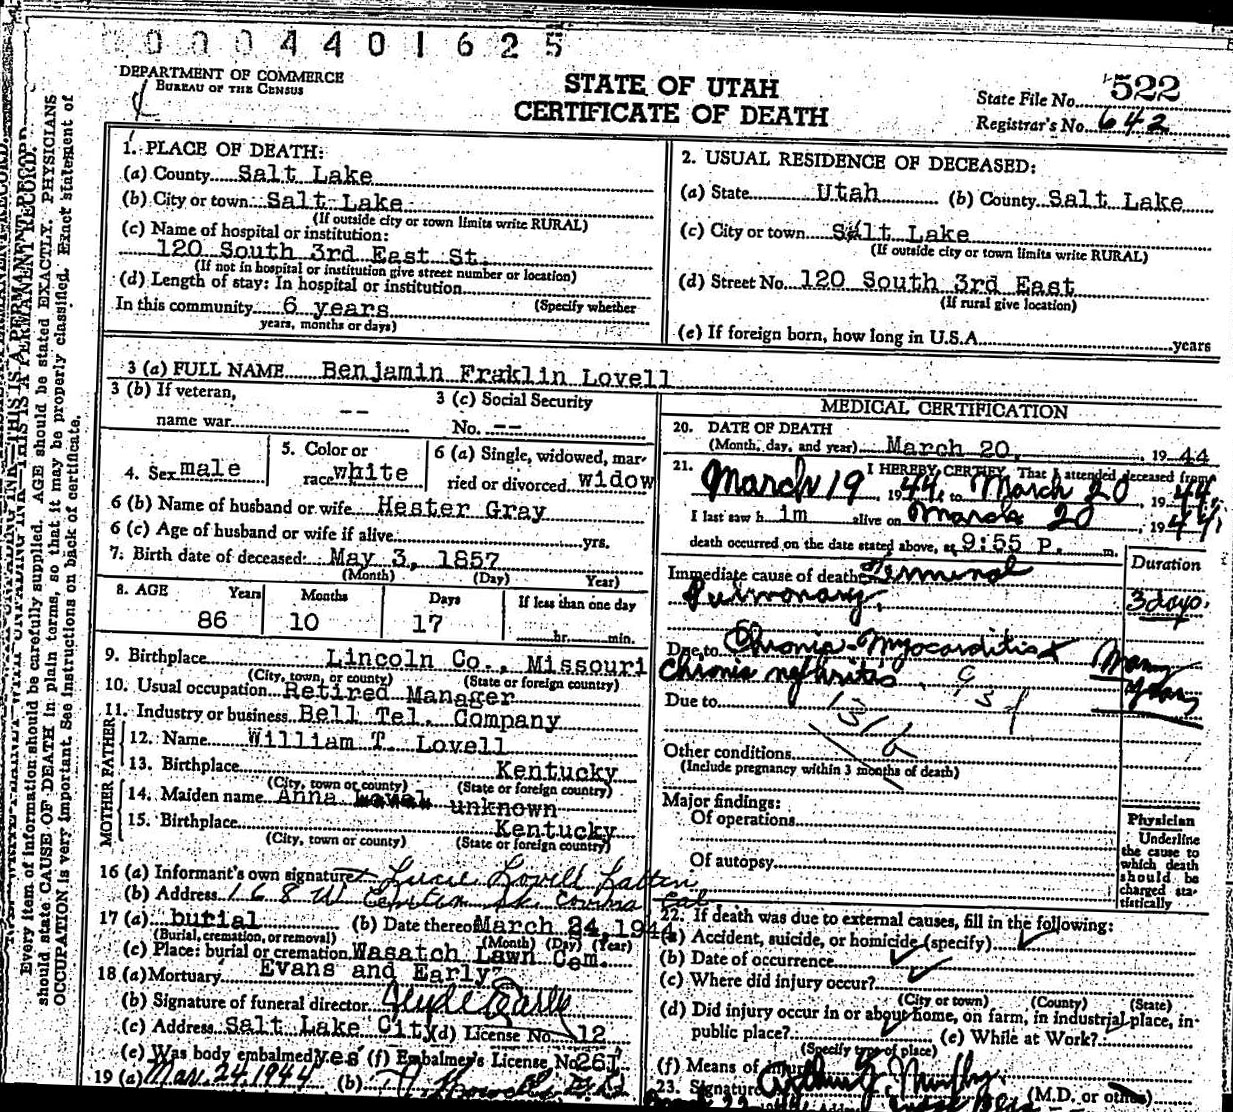 0 0 0 4 4 0 1 6 2 5
DEPARTMENT OF COMMERCE
BUREAU OF THE CENSUS
STATE OF UTAH
CERTIFICATE OF DEATH
State File No. 522
Registrar's No. 642
Every item of information should be carefully supplied. AGE should be stated EXACTLY. PHYSICIANS
should state CAUSE OF DEATH in plain terms, so that it may be properly classified. Exact statement of
OCCUPATION is very important. See instructions on back of certificate.
1. PLACE OF DEATH:
(a) County Salt Lake
(b) City or town Salt Lake
(If outside city or town limits write RURAL)
(c) Name of hospital or institution:
120 South 3rd East St.
(If not in hospital or institution give street number or location)
(d) Length of stay: In hospital or institution
In this community 6 years (Specify whether
years, months or days)
2. USUAL RESIDENCE OF DECEASED:
(a) State Utah (b) County Salt Lake
(c) City or town Salt Lake
(If outside city or town limits write RURAL)
(d) Street No. 120 South 3rd East
(If rural give location)
(e) If foreign born, how long in U.S.A. years
3 (a) FULL NAME Benjamin Fraklin Lovell
3 (b) If veteran,
name war --
3 (c) Social Security
No. --
4. Sex male
5. Color or
race white
6 (a) Single, widowed, mar-
ried or divorced widow
6 (b) Name of husband or wife Hester Gray
6 (c) Age of husband or wife if alive yrs.
7. Birth date of deceased: May 3, 1857
(Month) (Day) Year)
8. AGE Years Months Days If less than one day
86 10 17 hr. min.
9. Birthplace Lincoln Co., Missouri
(City, town, or county) (State or foreign country)
10. Usual occupation Retired Manager
11. Industry or business Bell Tel. Company
FATHER
12. Name William T. Lovell
13. Birthplace Kentucky
(City, town or county) (State or foreign country)
MOTHER
14. Maiden name Anna unknown
15. Birthplace Kentucky
(City, town or county) (State or foreign country)
16 (a) Informant's own signature Lucie Lovell
(b) Address 168 W Covina Cal
17 (a) burial (b) Date thereof March 24, 1944
(Burial, cremation, or removal) (Month) (Day) (Year)
(c) Place: burial or cremation Wasatch Lawn Cem.
18 (a) Mortuary Evans and Early
(b) Signature of funeral director Clyde Early
(c) Address Salt Lake City (d) License No. 12
(e) Was body embalmed yes (f) Embalmer's License No. 261
19 (a) Mar. 24, 1944 (b)
MEDICAL CERTIFICATION
20. DATE OF DEATH
(Month, day, and year) March 20, 19 44
21. I HEREBY CERTIFY, That I attended deceased from
March 19, 19 44, to March 20, 19 44,
I last saw h im alive on March 20, 19 44;
death occurred on the date stated above, at 9:55 P. m.
Duration
Immediate cause of death Terminal
Pulmonary, 3 days.
Due to Chronic Myocarditis Many
Chronic nephritis years
93d
Due to
131 b
Other conditions
(Include pregnancy within 3 months of death)
Major findings:
Of operations
Of autopsy
Physician
Underline
the cause to
which death
should be
charged sta-
tistically
22. If death was due to external causes, fill in the following:
(a) Accident, suicide, or homicide (specify)
(b) Date of occurrence
(c) Where did injury occur?
(City or town) (County) (State)
(d) Did injury occur in or about home, on farm, in industrial place, in
public place? (e) While at Work?
(Specify type of place)
(f) Means of injury
23. Signature Murphy (M.D. or other)